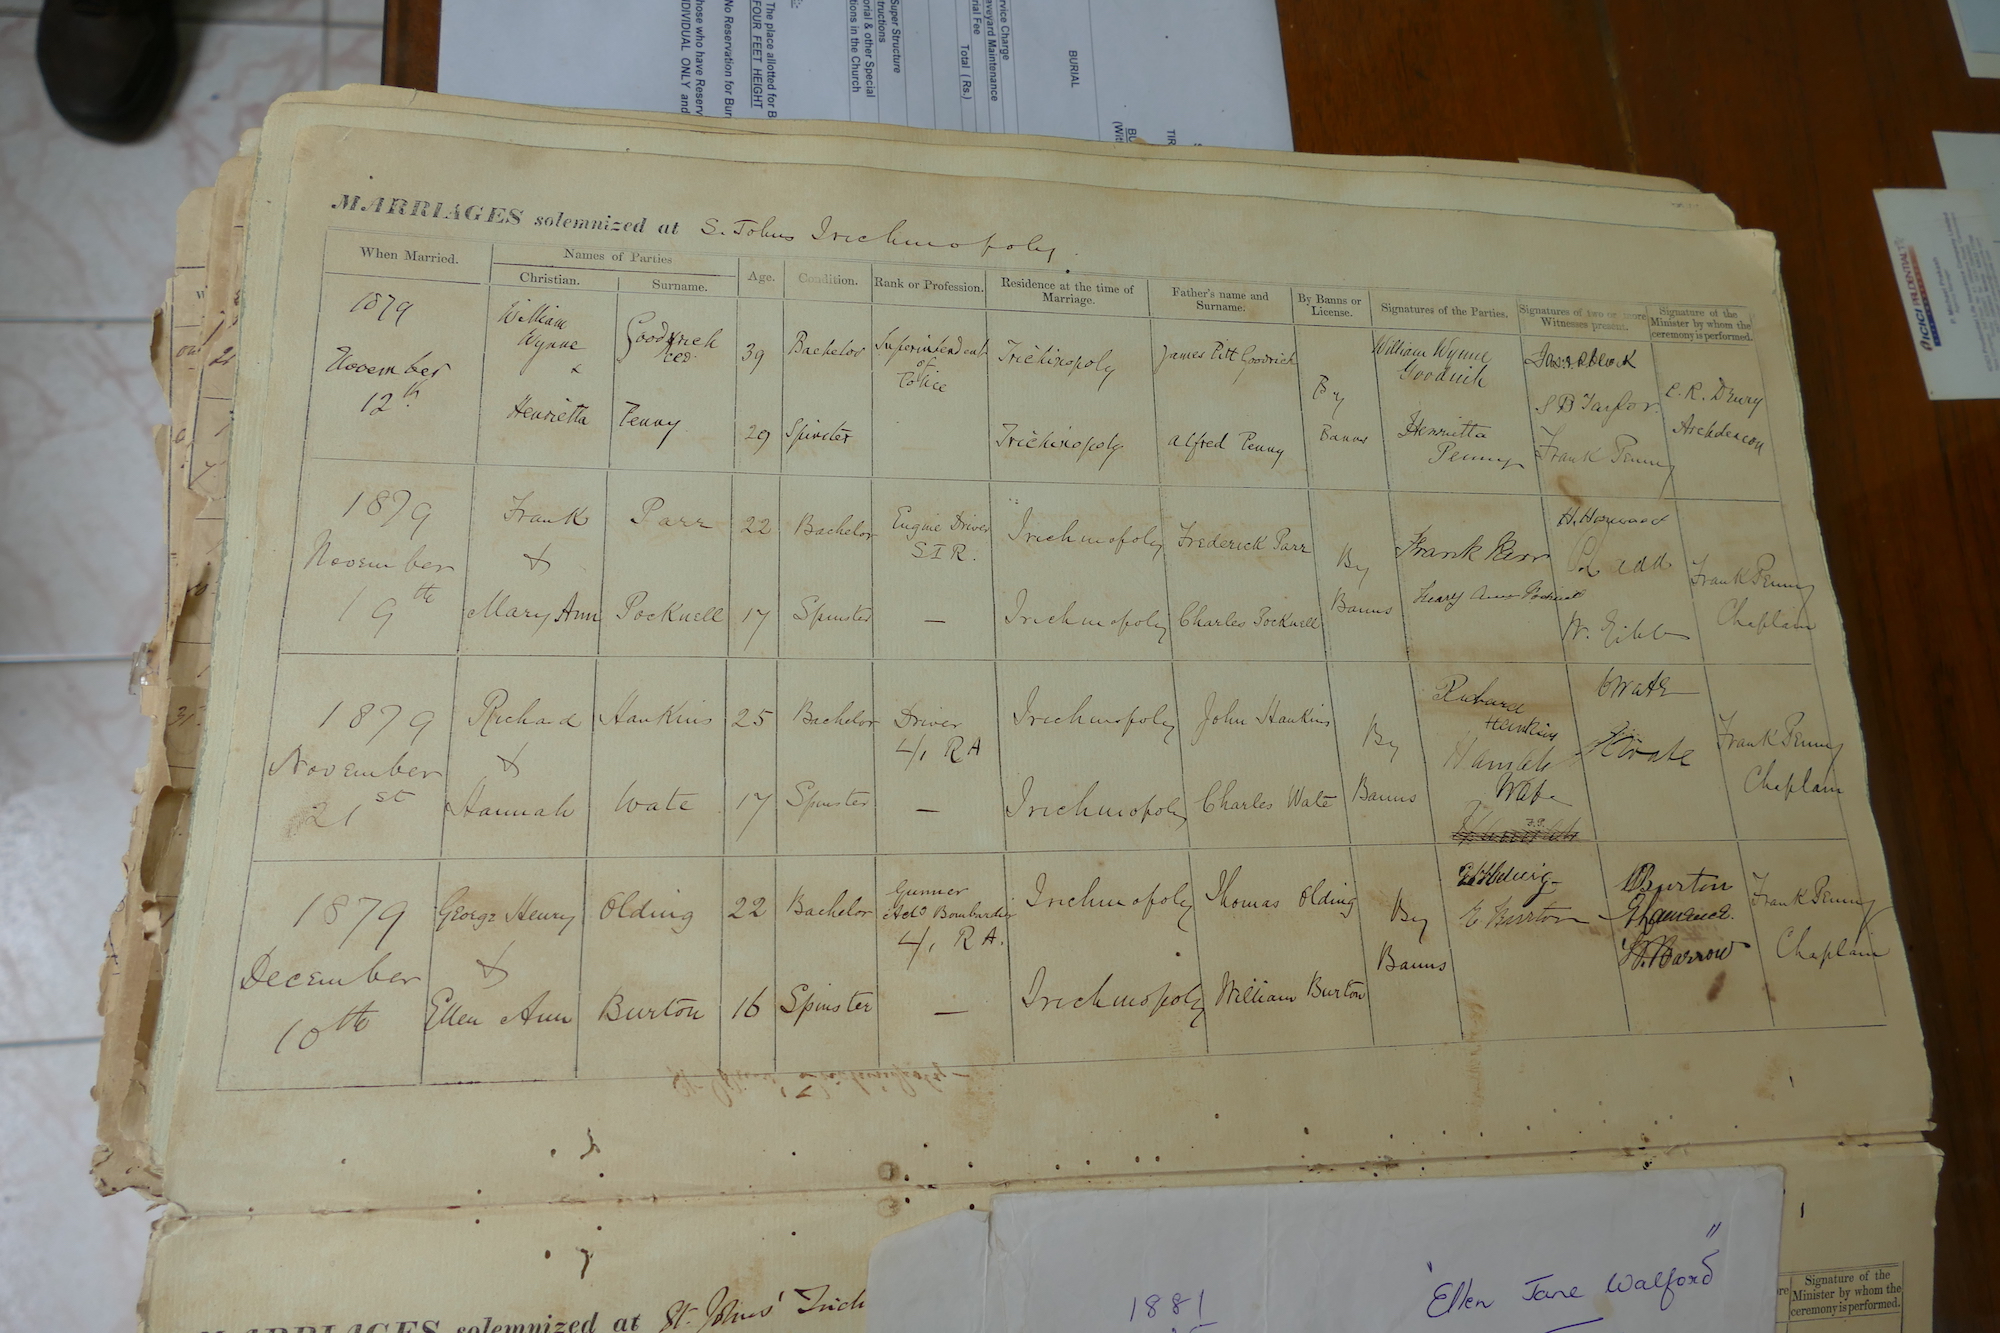 The place allotted for B
FOUR FEET HEIGHT
No Reservation for Bur
hose who have Reserv
DIVIDUAL ONLY and
Super Structure
tructions
orial & other Special
tions in the Church
rvice Charge
aveyard Maintenance
rial Fee
Total (Rs.)
BURIAL
ICICI PRUDENTIAL
MARRIAGES solemnized at S. Johns Trichinopoly.
When Married.
Names of Parties
Christian.
Surname.
Age.
Condition.
Rank or Profession.
Residence at the time of
Marriage.
Father's name and
Surname.
By Banns or
License.
Signatures of the Parties.
Signatures of two or more
Witnesses present.
Signature of the
Minister by whom the
ceremony is performed.
1879
November
12th
William
Wynne
&
Henrietta
Goodrich
Penny
39
29
Bachelor
Spinster
Superintendent
of
Police
Trichinopoly
Trichinopoly
James Pitt Goodrich
Alfred Penny
By
Banns
William Wynne
Goodrich
Henrietta
Penny
S B Taylor.
Frank Penny
C. R. Drury
Archdeacon
1879
November
19th
Frank
&
Mary Ann
Parr
Pocknell
22
17
Bachelor
Spinster
Engine Driver
S I R.
—
Trichinopoly
Trichinopoly
Frederick Parr
Charles Pocknell
By
Banns
Frank Parr
H. Haywood
W. Gibb
Frank Penny
Chaplain
1879
November
21st
Richard
&
Hannah
Hankins
Wate
25
17
Bachelor
Spinster
Driver
4/1 RA
—
Trichinopoly
Trichinopoly
John Hankins
Charles Wate
By
Banns
Richard
Hankins
Hannah
Wate
C Wate
Frank Penny
Chaplain
1879
December
10th
George Henry
&
Ellen Ann
Olding
Burton
22
16
Bachelor
Spinster
Gunner
Actg Bombardier
4/1 RA.
—
Trichinopoly
Trichinopoly
Thomas Olding
William Burton
By
Banns
E Burton
W Burton
Frank Penny
Chaplain
MARRIAGES solemnized at St. Johns' Trich
1881
"Ellen Jane Walford"
Signature of the
Minister by whom the
ceremony is performed.